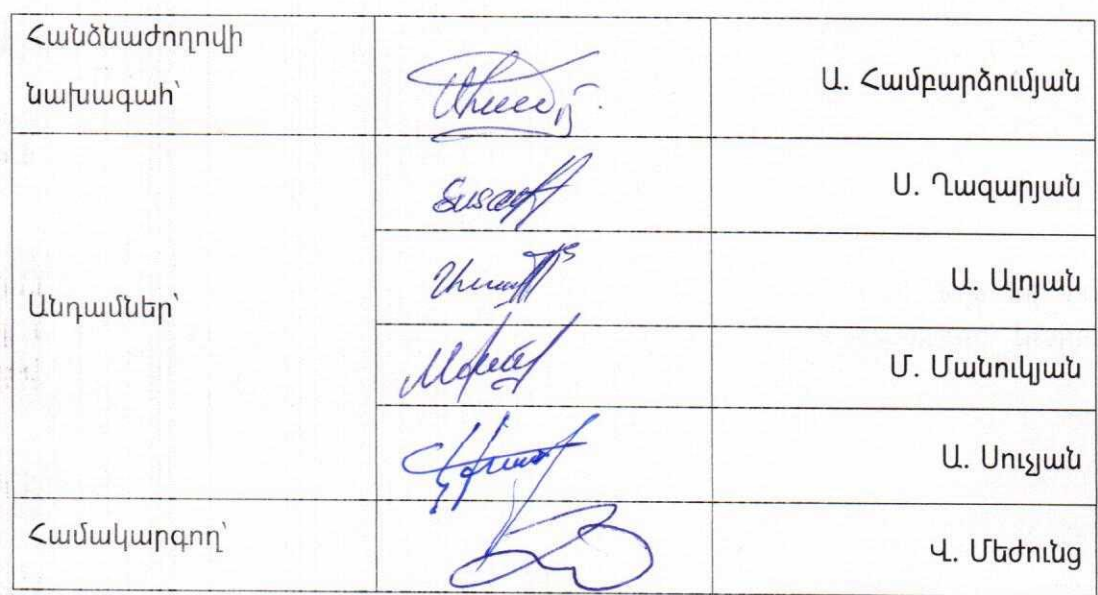 Հանձնաժողովի
նախագահ՝
Ա. Համբարձումյան
Ս. Ղազարյան
Անդամներ՝
Ա. Ալոյան
Մ. Մանուկյան
Ա. Սուչյան
Համակարգող՝
Վ. Մեժունց